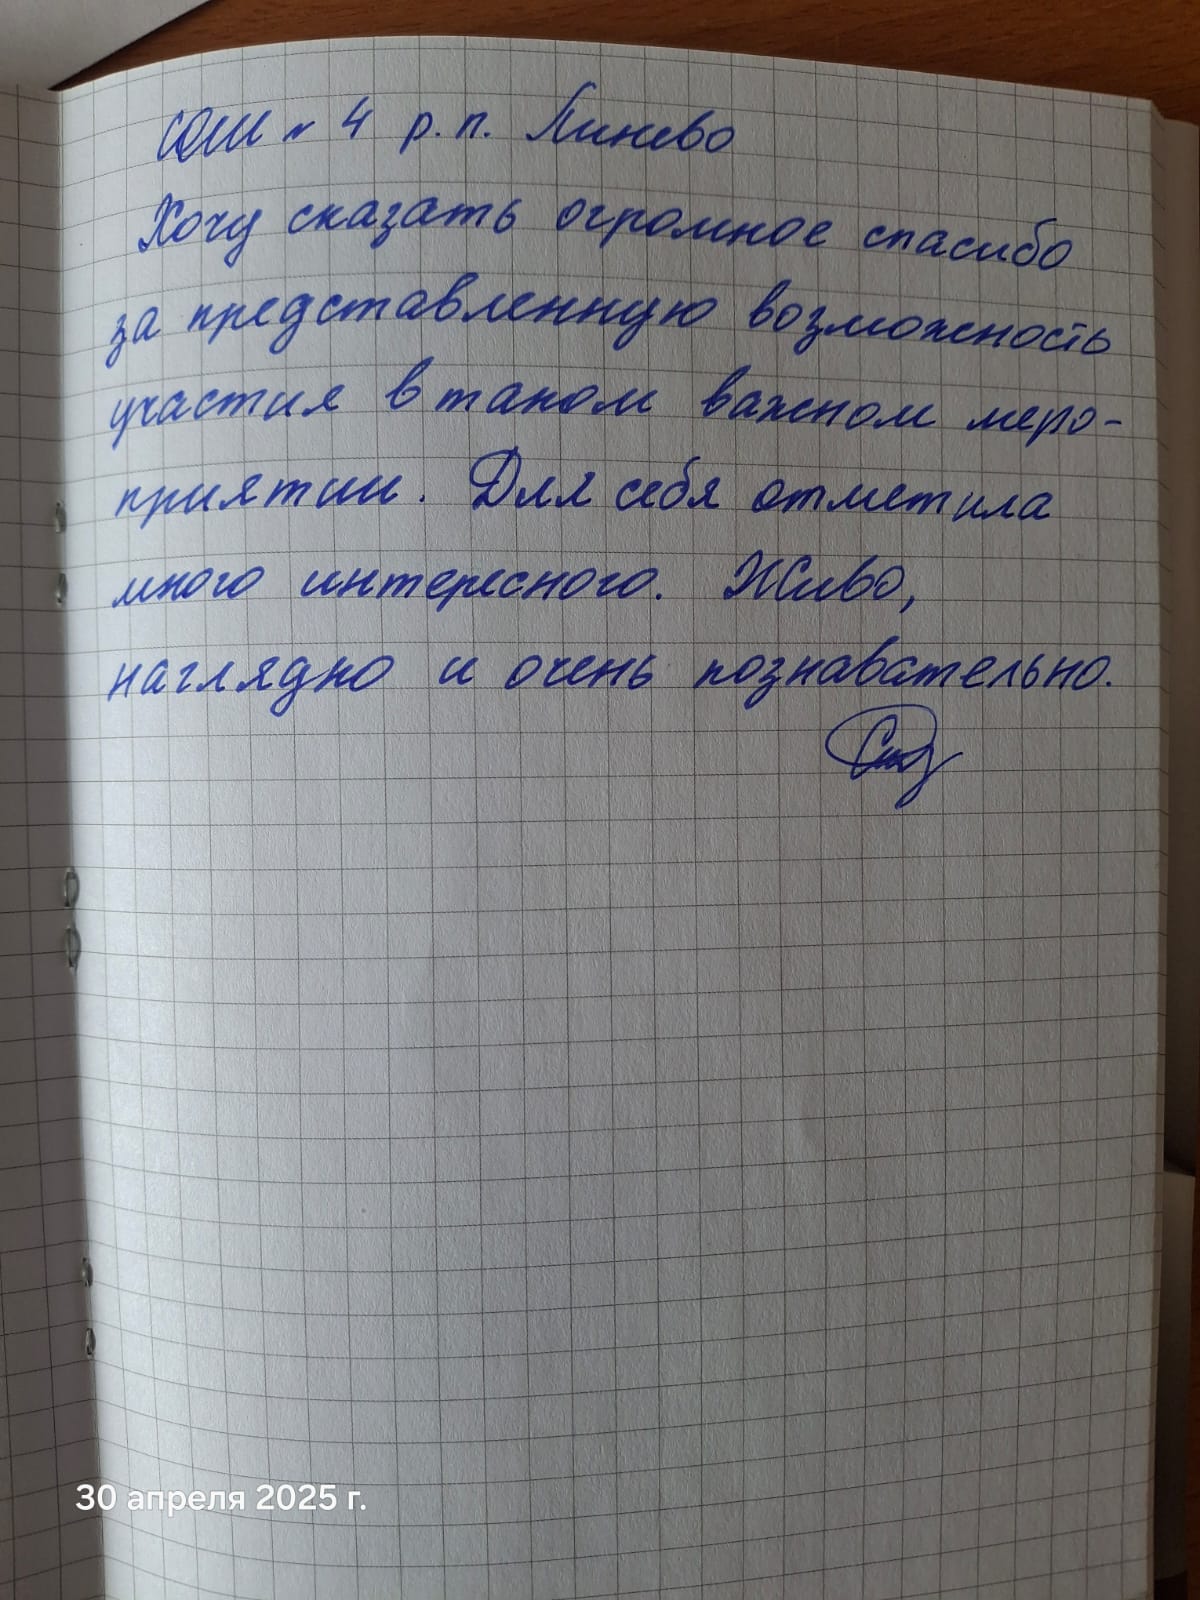 СОШ № 4 р.п. Линево
Хочу сказать огромное спасибо
за представленную возможность
участия в таком важном меро-
приятии. Для себя отметила
много интересного. Живо,
наглядно и очень познавательно.
30 апреля 2025 г.